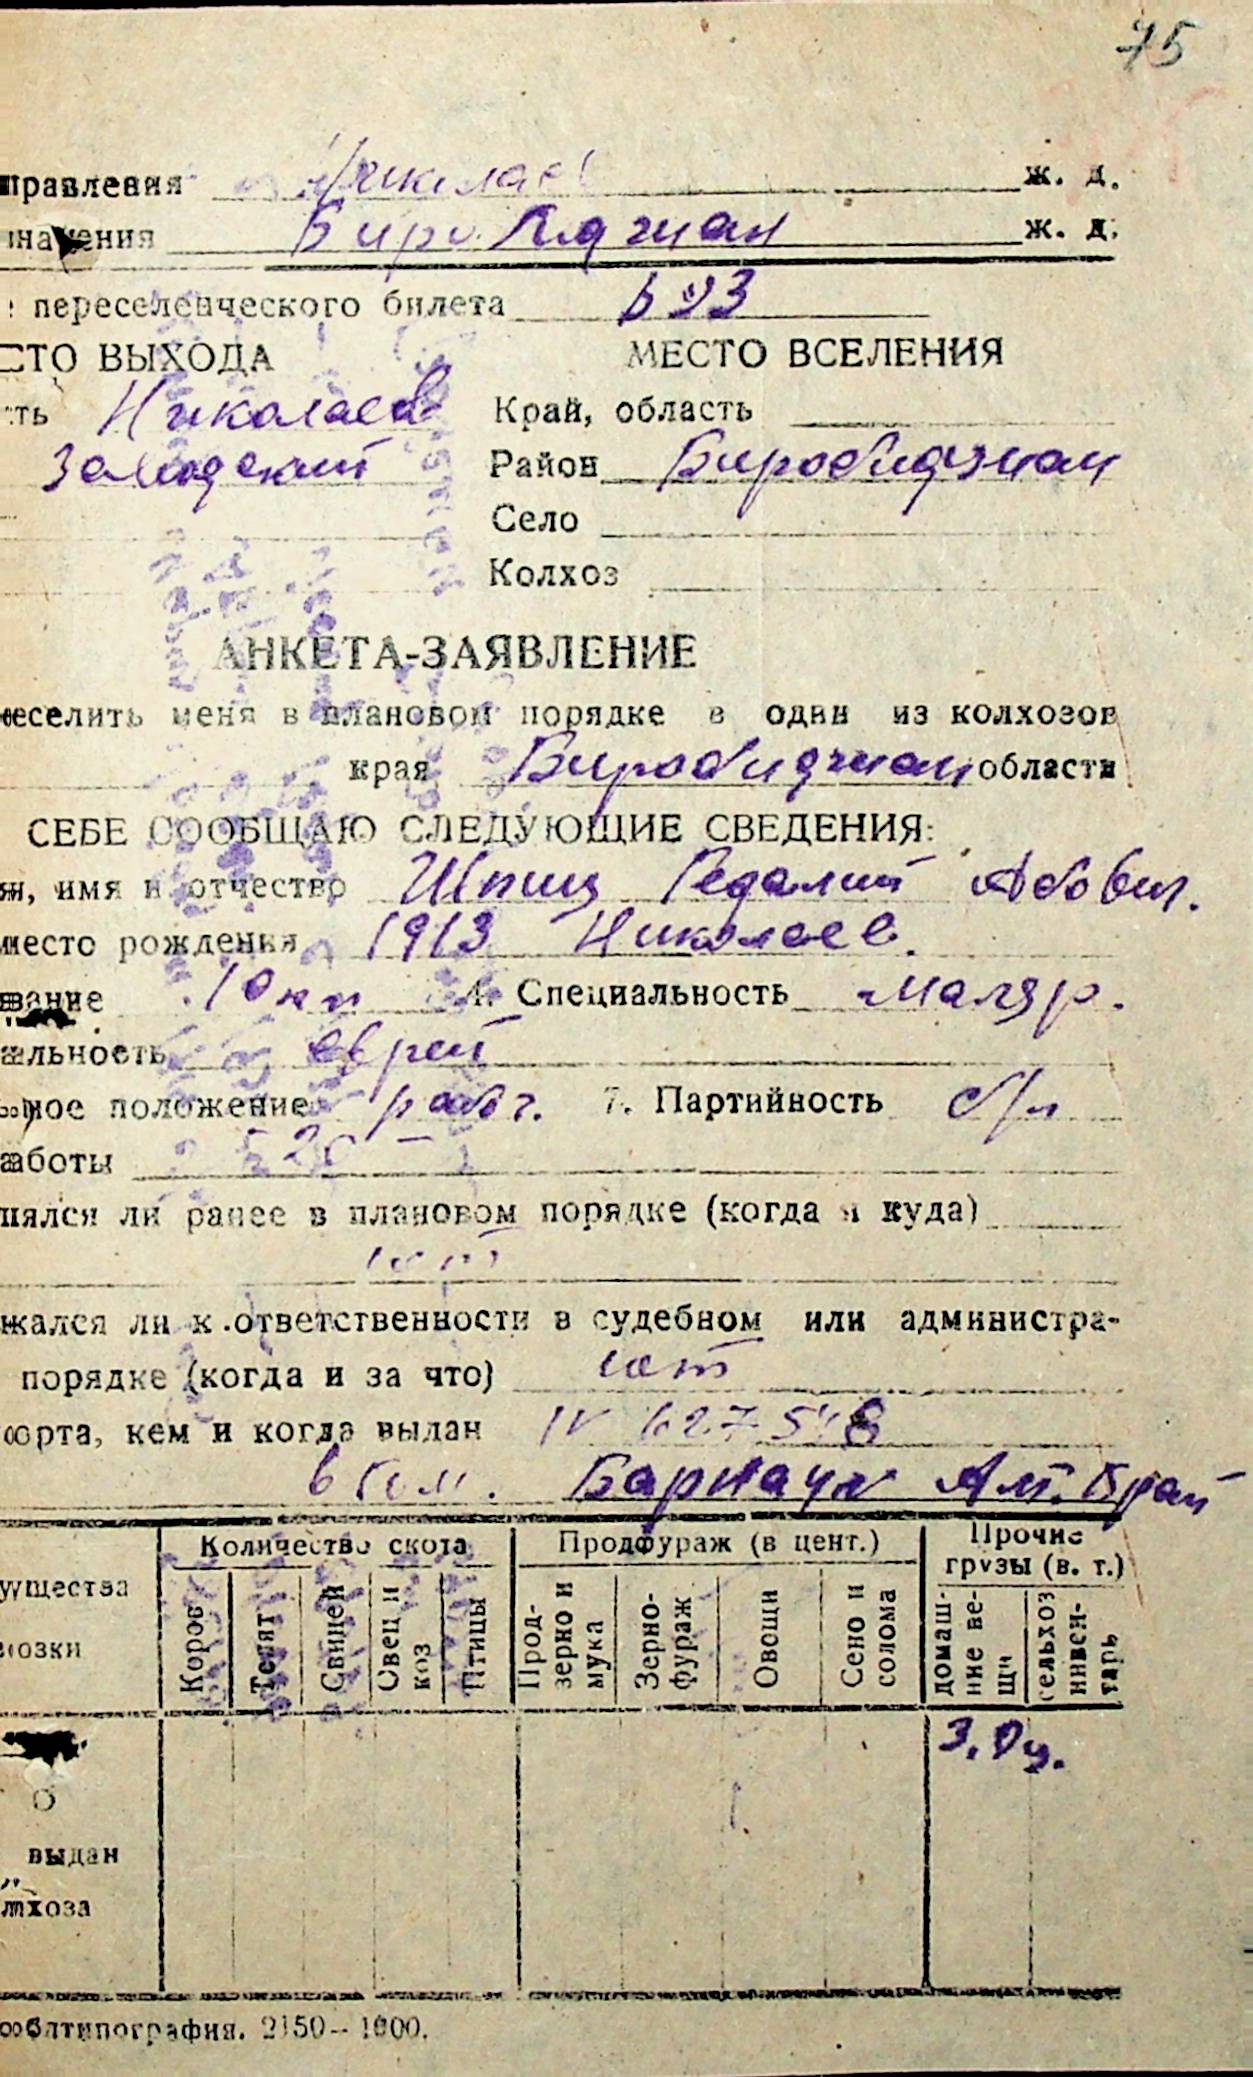 75
правления Николаев ж. д.
начения Биробиджан ж. д.
переселенческого билета 693
СТО ВЫХОДА МЕСТО ВСЕЛЕНИЯ
ть Николаев Край, область
Район Биробиджан
Село
Колхоз
АНКЕТА-ЗАЯВЛЕНИЕ
еселить меня в плановом порядке в один из колхозов
края Биробиджан области
СЕБЕ СООБЩАЮ СЛЕДУЮЩИЕ СВЕДЕНИЯ:
я, имя и отчество Шпиц Гедалий Абович.
место рождения 1913 Николаев.
вание 4. Специальность маляр.
альность еврей
ное положение рабоч. 7. Партийность б/п
аботы
лялся ли ранее в плановом порядке (когда и куда)
нет
жался ли к ответственности в судебном или администра-
порядке (когда и за что) нет
орта, кем и когда выдан IV 627548
Барнаул Алт. Край
Количество скота Продфураж (в цент.) Прочие грузы (в. т.)
ущества
озки
Коров Телят Свиней Овец и коз Птицы Прод-зерно и мука Зерно-фураж Овощи Сено и солома домаш-ние ве-щи сельхоз инвен-тарь
выдан
лхоза
облтипография. 2150—1000.